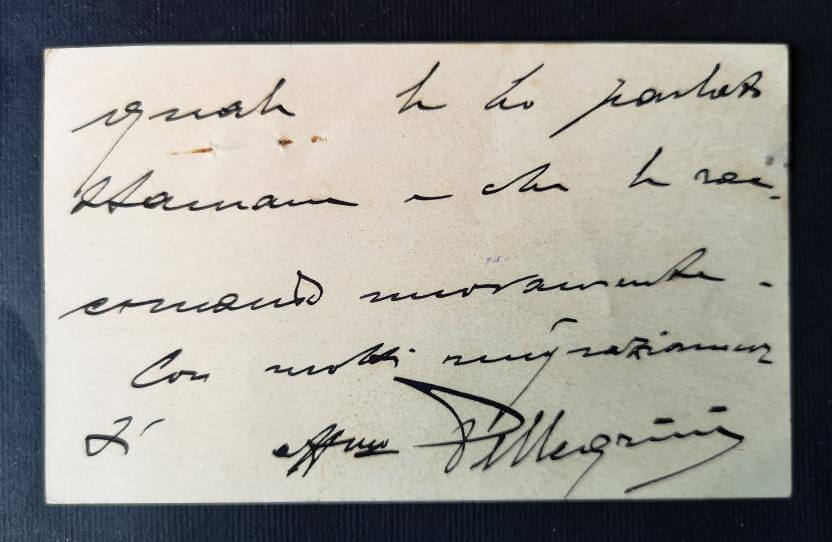 quale le ho parlato
stamane e che le rac-
comando nuovamente.
Con molti ringraziamenti
aff.mo Pellegrini